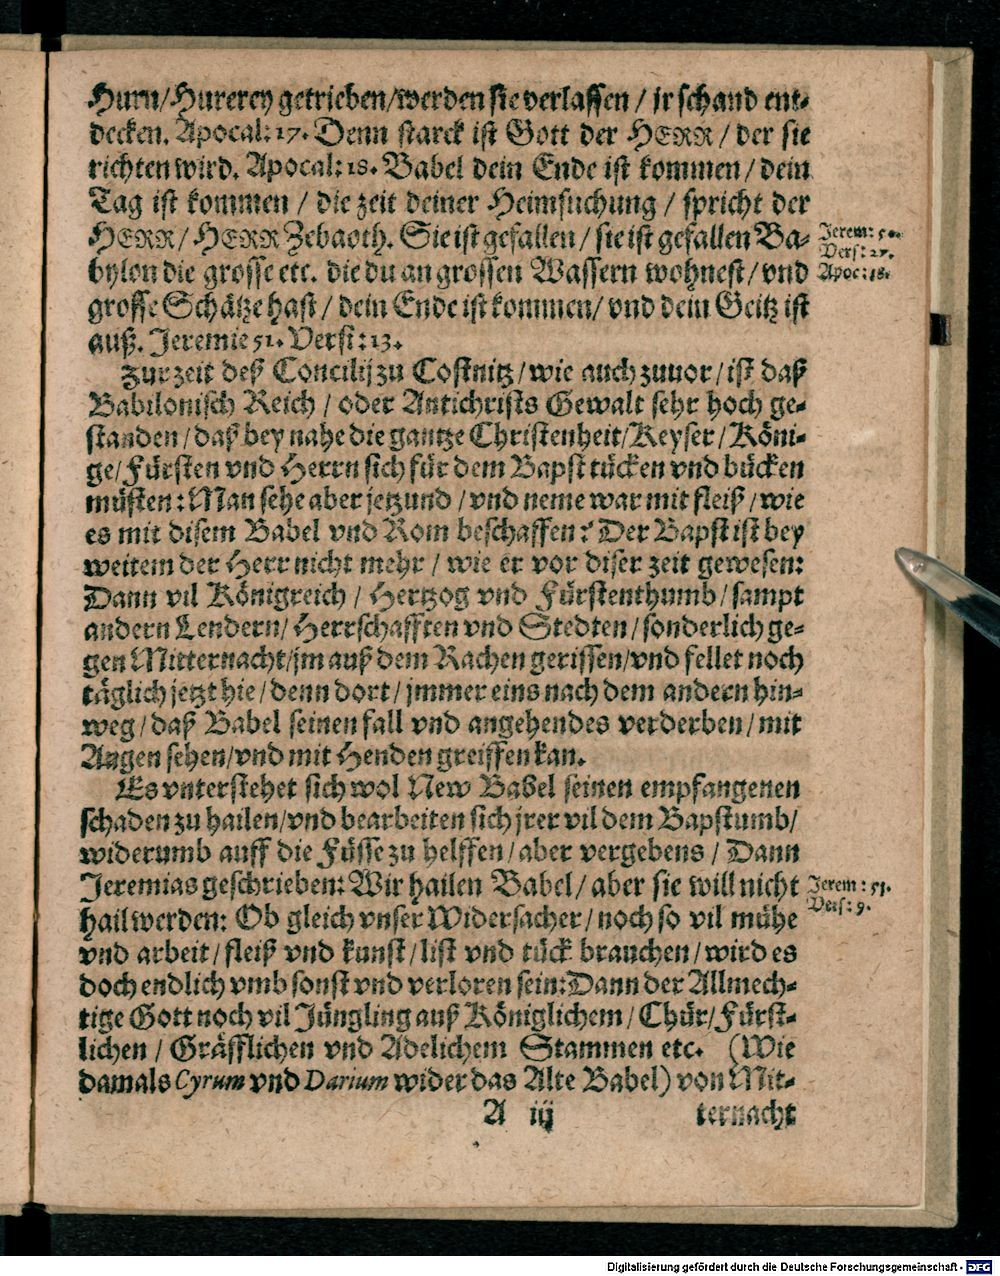 Hurn/Hurerey getrieben/werden sie verlassen / jr schand ent-
decken. Apocal: 17. Denn starck ist Gott der HERR / der sie
richten wird. Apocal: 18. Babel dein Ende ist kommen / dein
Tag ist kommen / die zeit deiner Heimsuchung / spricht der
HERR/ HERR Zebaoth. Sie ist gefallen / sie ist gefallen Ba-
Jerem: 50.
Vers: 27.
Apoc: 18.
bylon die grosse etc. die du an grossen Wassern wohnest / vnd
grosse Schätze hast / dein Ende ist kommen/ vnd dein Geitz ist
auß. Jeremie 51. Vers: 13.
Zur zeit deß Concilij zu Costnitz / wie auch zuuor / ist daß
Babilonisch Reich / oder Antichrists Gewalt sehr hoch ge-
standen / daß bey nahe die gantze Christenheit/Keyser / Köni-
ge/ Fürsten vnd Herrn sich für dem Bapst tücken vnd bücken
müsten: Man sehe aber jetzund / vnd neme war mit fleiß / wie
es mit disem Babel vnd Rom beschaffen? Der Bapst ist bey
weitem der Herr nicht mehr / wie er vor diser zeit gewesen:
Dann vil Königreich / Hertzog vnd Fürstenthumb/ sampt
andern Lendern/ Herrschafften vnd Stedten / sonderlich ge-
gen Mitternacht/jm auß dem Rachen gerissen/vnd fellet noch
täglich jetzt hie / denn dort / jmmer eins nach dem andern hin-
weg / daß Babel seinen fall vnd angehendes verderben / mit
Augen sehen/vnd mit Henden greiffen kan.
Es vnterstehet sich wol New Babel seinen empfangenen
schaden zu hailen/vnd bearbeiten sich jrer vil dem Bapstumb/
widerumb auff die Füsse zu helffen / aber vergebens / Dann
Jeremias geschrieben: Wir hailen Babel / aber sie will nicht
Jerem: 51.
Vers: 9.
hail werden: Ob gleich vnser Widersacher / noch so vil mühe
vnd arbeit / fleiß vnd kunst / list vnd tück brauchen / wird es
doch endlich vmb sonst vnd verloren sein: Dann der Allmech-
tige Gott noch vil Jüngling auß Königlichem / Chür/Fürst-
lichen / Gräfflichen vnd Adelichem Stammen etc. (Wie
damals Cyrum vnd Darium wider das Alte Babel) von Mit-
A iij ternacht
Digitalisierung gefördert durch die Deutsche Forschungsgemeinschaft - DFG